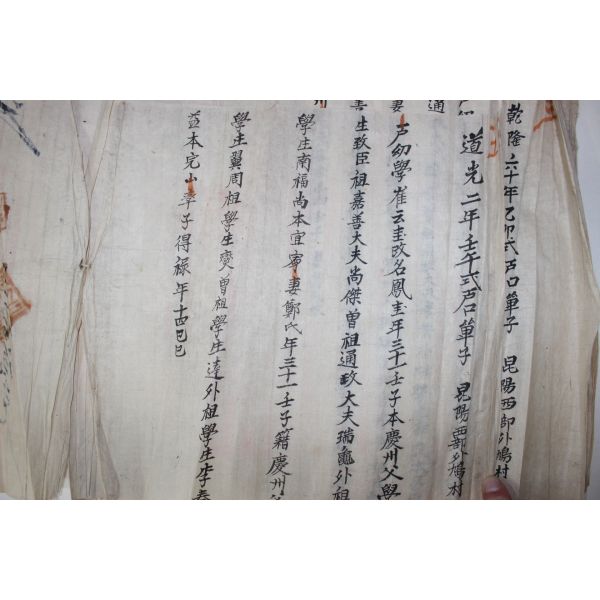 乾隆六十年乙卯式戶口單子 昆陽西部外鳩村
道光二年壬午式戶口單子 昆陽西部外鳩村
戶幼學崔云圭改名鳳圭年三十一壬子本慶州父學
生致臣祖嘉善大夫尚傑曾祖通政大夫瑞龜外祖
學生南福尚本宜寧妻鄭氏年三十一壬子籍慶州父
學生翼周祖學生爕曾祖學生達外祖學生李春
益本完山率子得祿年十四己巳